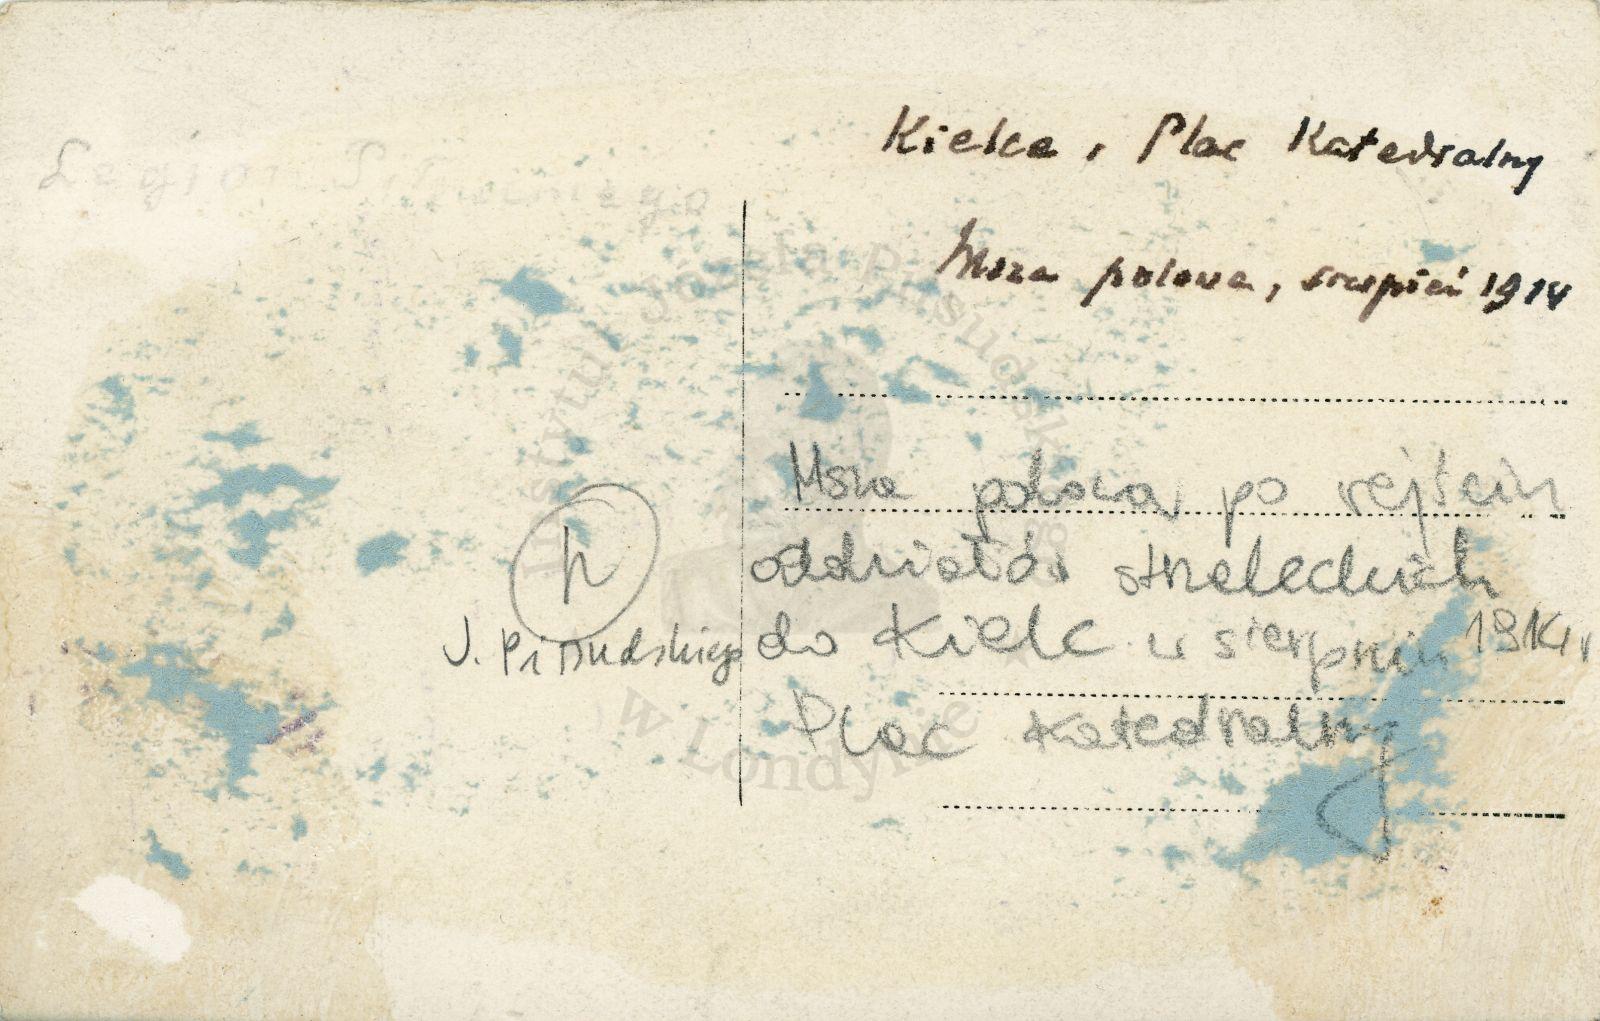 Kielce, Plac Katedralny
Msza polowa, sierpień 1914
Msza polowa po wejściu
oddziałów strzeleckich
J. Piłsudskiego do Kielc w sierpniu 1914 r
Plac Katedralny
Instytut Józefa Piłsudskiego
w Londynie